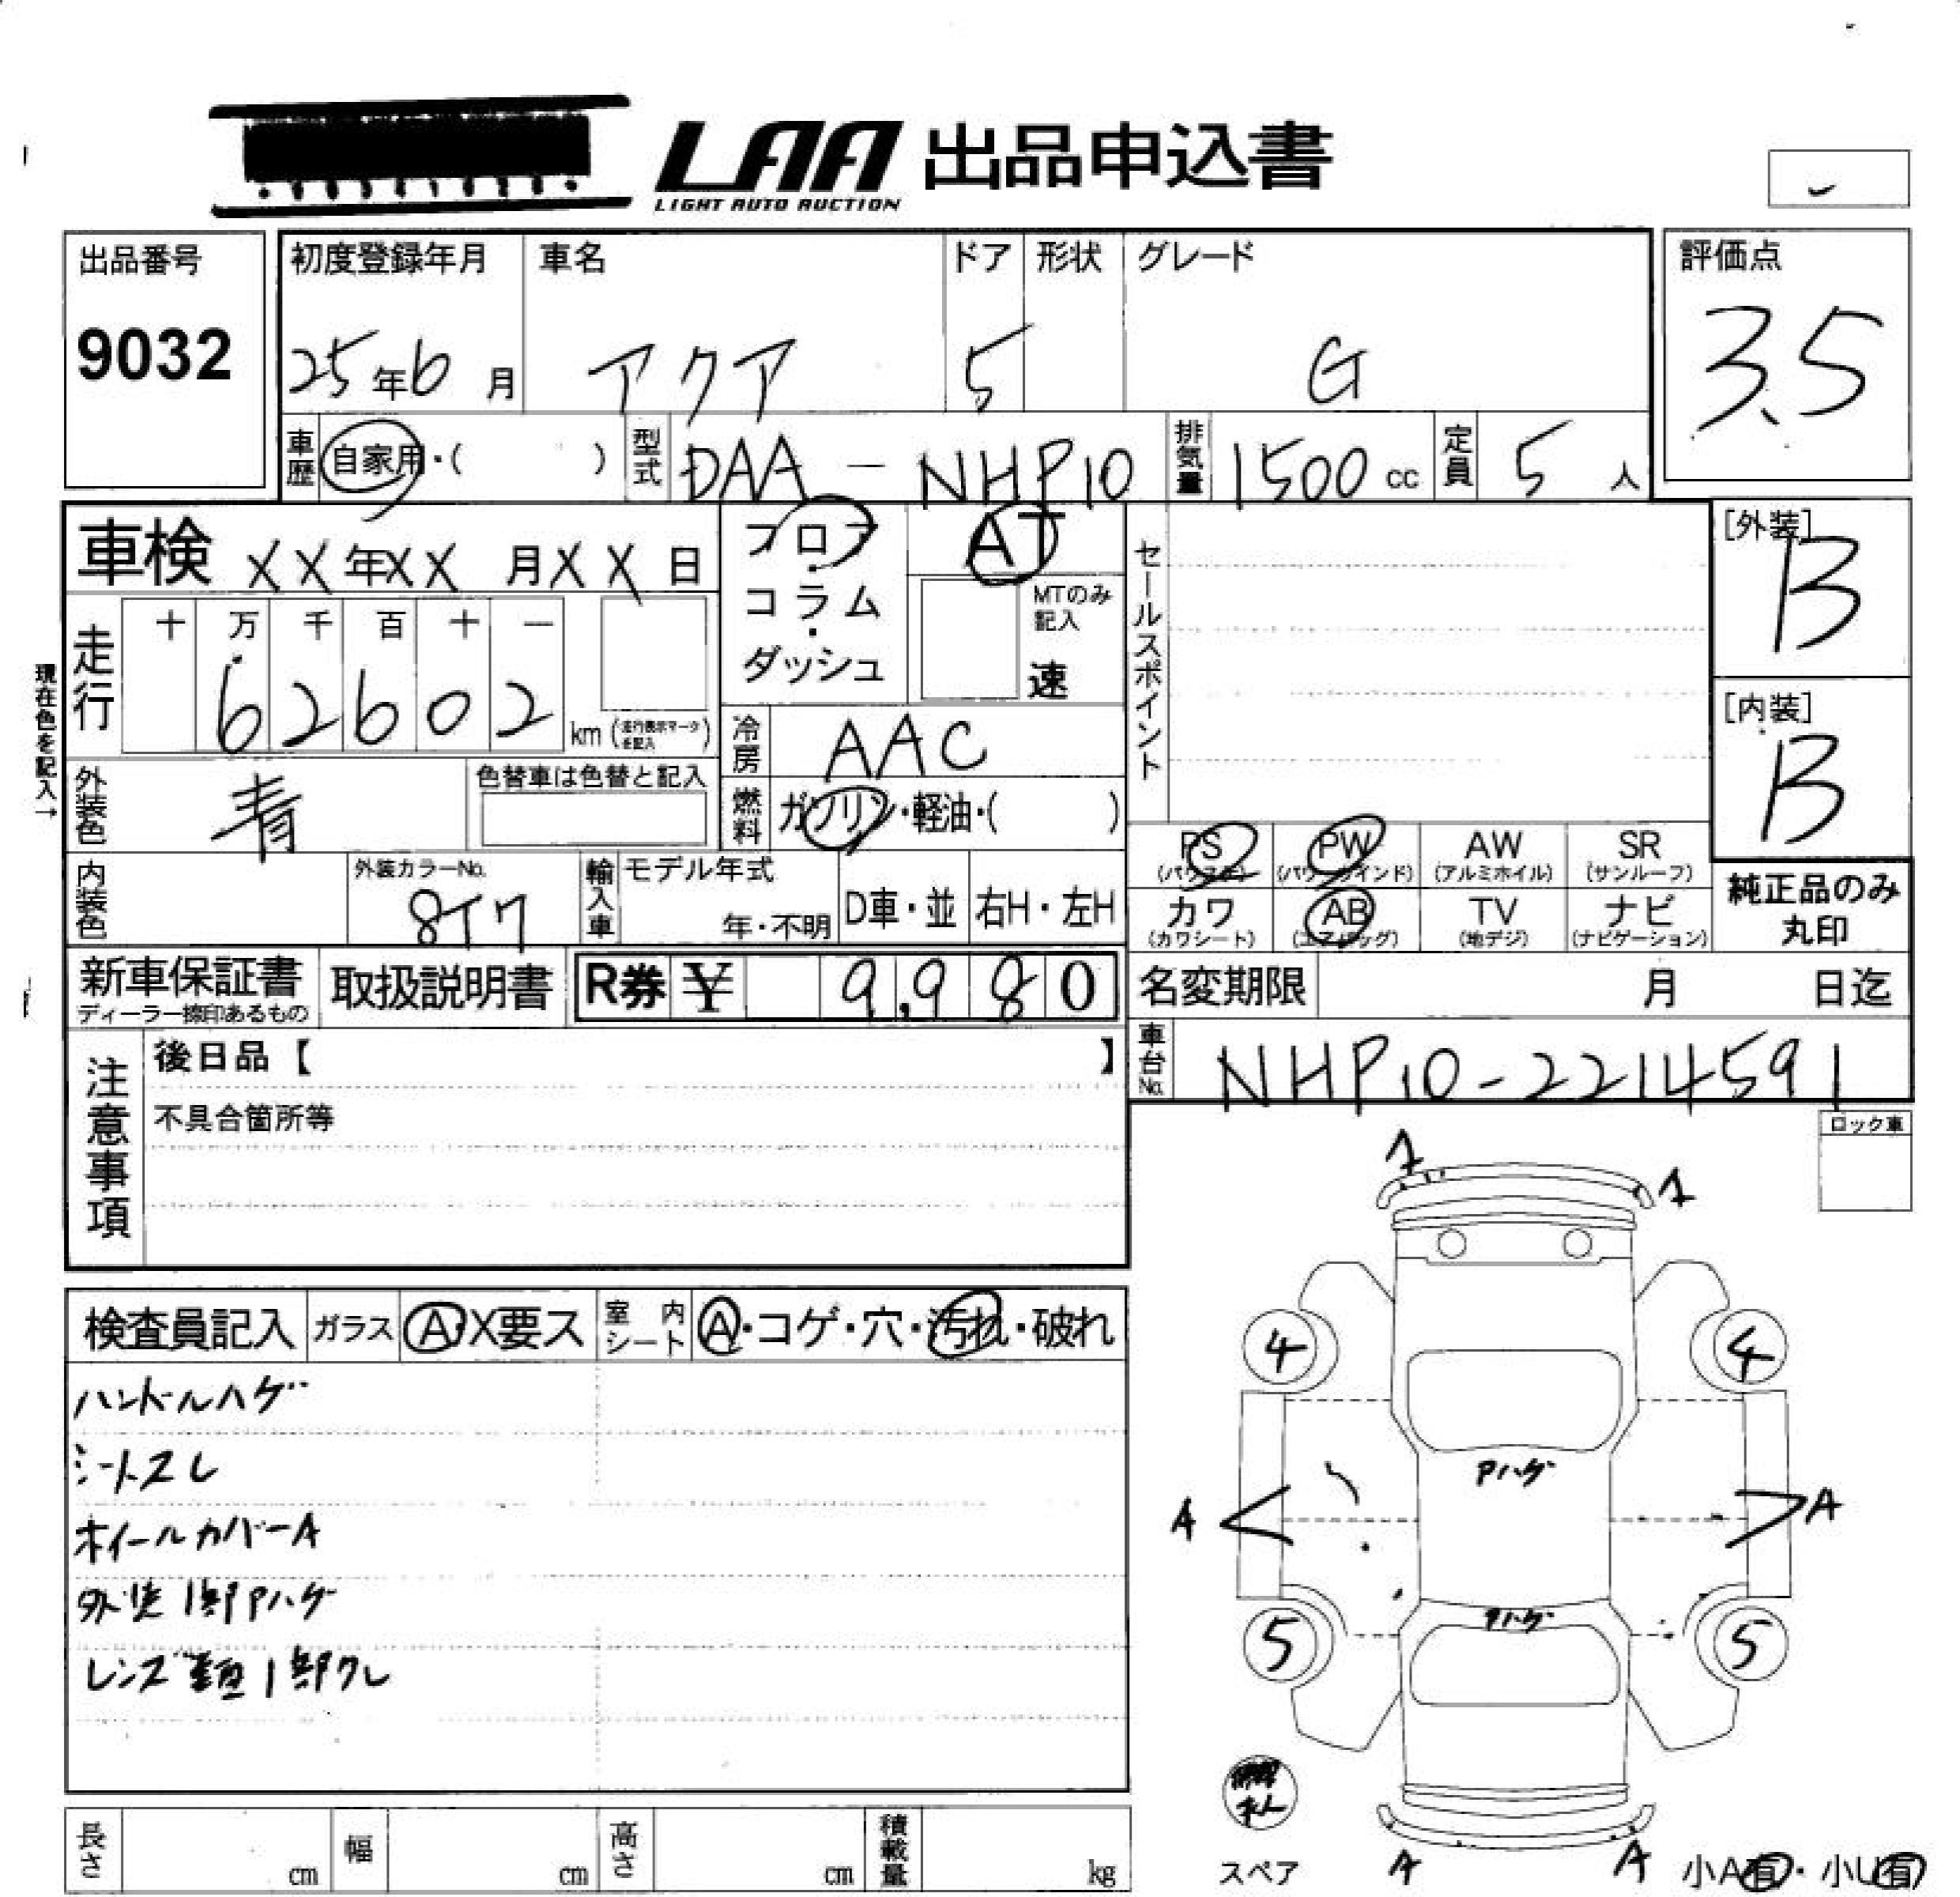 LAA 出品申込書
LIGHT AUTO AUCTION
出品番号
9032
初度登録年月 車名 ドア 形状 グレード
25年6月 アクア 5 G
評価点
3.5
車歴 自家用・( ) 型式 DAA-NHP10 排気量 1500cc 定員 5人
車検 XX年XX月XX日
フロア・コラム・ダッシュ
AT
MTのみ記入
速
セールスポイント
[外装]
B
[内装]
B
現在色を記入→
走行 十 万 千 百 十 一
62602 km (走行表示マークを記入)
冷房 AAC
燃料 ガソリン・軽油・( )
外装色 青 色替車は色替と記入
内装色 外装カラーNo. 8T7
輸入車 モデル年式 年・不明 D車・並 右H・左H
PS (パワステ) PW (パワーウインド) AW (アルミホイル) SR (サンルーフ)
カワ (カワシート) AB (エアバッグ) TV (地デジ) ナビ (ナビゲーション)
純正品のみ丸印
新車保証書 取扱説明書 R券 ¥ 9,980
ディーラー捺印あるもの
名変期限 月 日迄
車台No. NHP10-2214591
注意事項
後日品【 】
不具合箇所等
ロック車
検査員記入 ガラス A・X要ス 室内シート A・コゲ・穴・汚れ・破れ
ハンドルハゲ
シートスレ
ホイールカバーA
外装1部Pハゲ
レンズ類1部クレ
A A
4 4
Pハゲ
A A
Pハゲ
5 5
スペア A A 小A有・小U有
長さ cm 幅 cm 高さ cm 積載量 kg